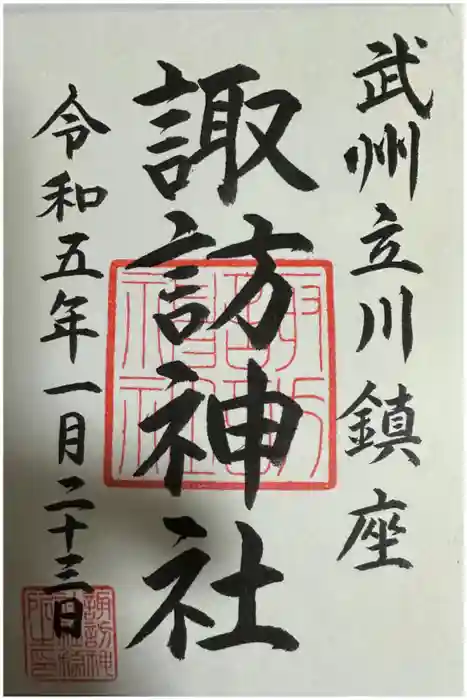 武州立川鎮座
諏訪神社
令和五年一月二十三日
諏訪神社